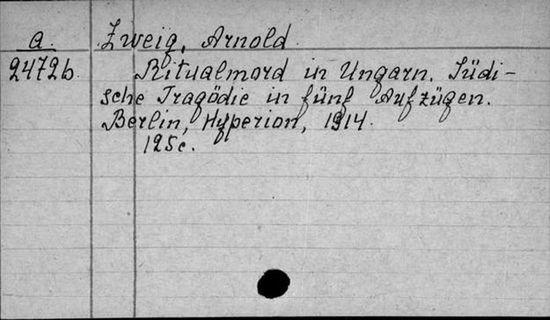 a. Zweig, Arnold.
24726. Ritualmord in Ungarn. Jüdi-
sche Tragödie in fünf Aufzügen.
Berlin, Hyperion, 1914.
125c.